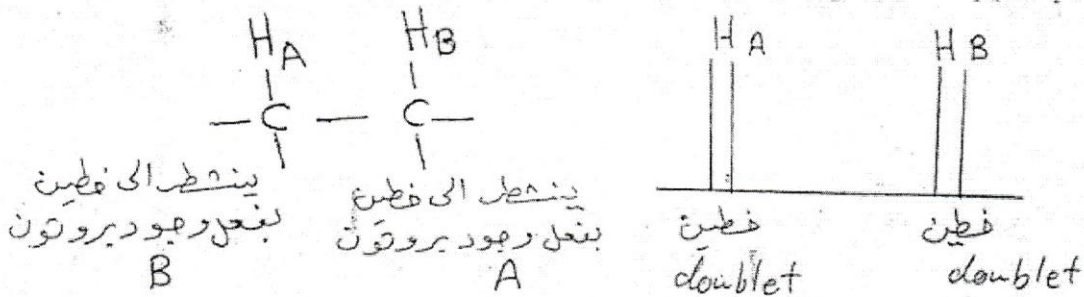 H A H B
H A H B
— C — C —
ينشطر الى خطين
بفعل وجود بروتون
B
ينشطر الى خطين
بفعل وجود بروتون
A
خطين
doublet
خطين
doublet